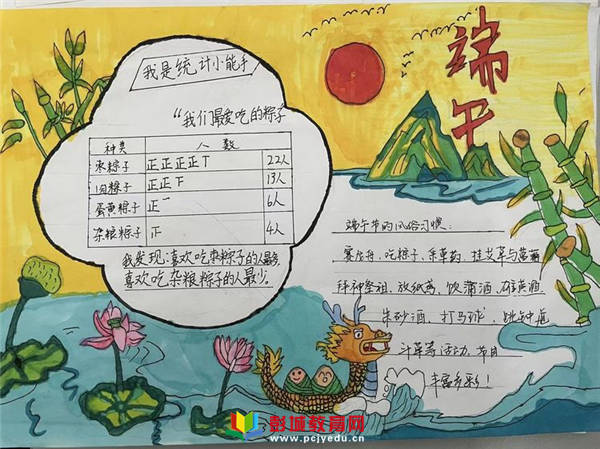 端午
我是统计小能手
"我们最爱吃的粽子"
种类 人数
枣粽子 正正正正T 22人
肉粽子 正正下 13人
蛋黄粽子 正一 6人
杂粮粽子 正 4人
我发现:喜欢吃枣粽子的人最多,
喜欢吃杂粮粽子的人最少。
端午节的风俗习惯:
赛龙舟、吃粽子、采草药、挂艾草与菖蒲
拜神祭祖、放纸鸢、饮蒲酒、雄黄酒
朱砂酒、打马球、跳钟馗
斗草等活动,节目
丰富多彩!
彭城教育网
www.pcjyedu.cn